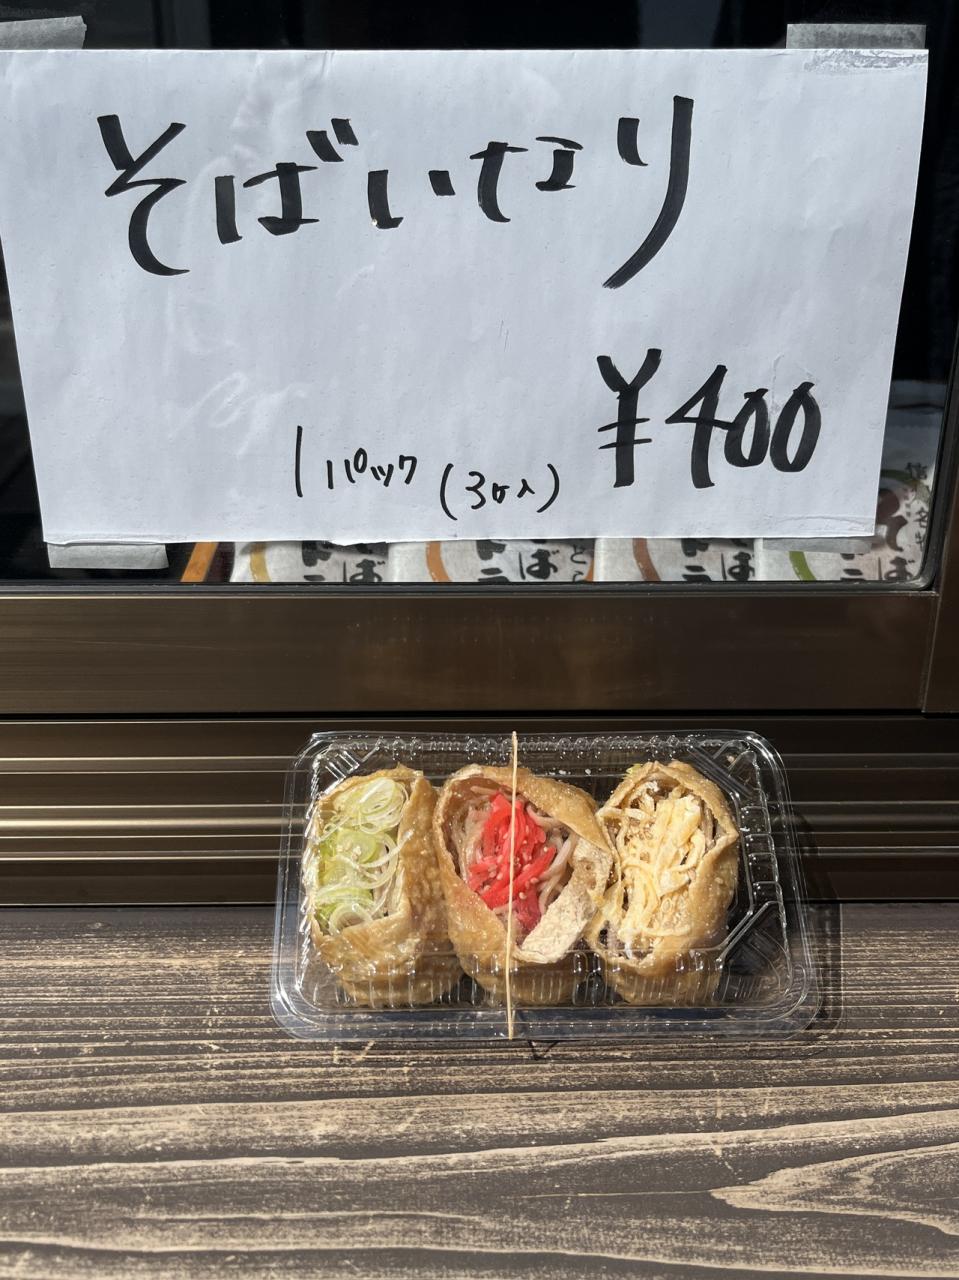 そばいなり
¥400
1パック(3ヶ入)